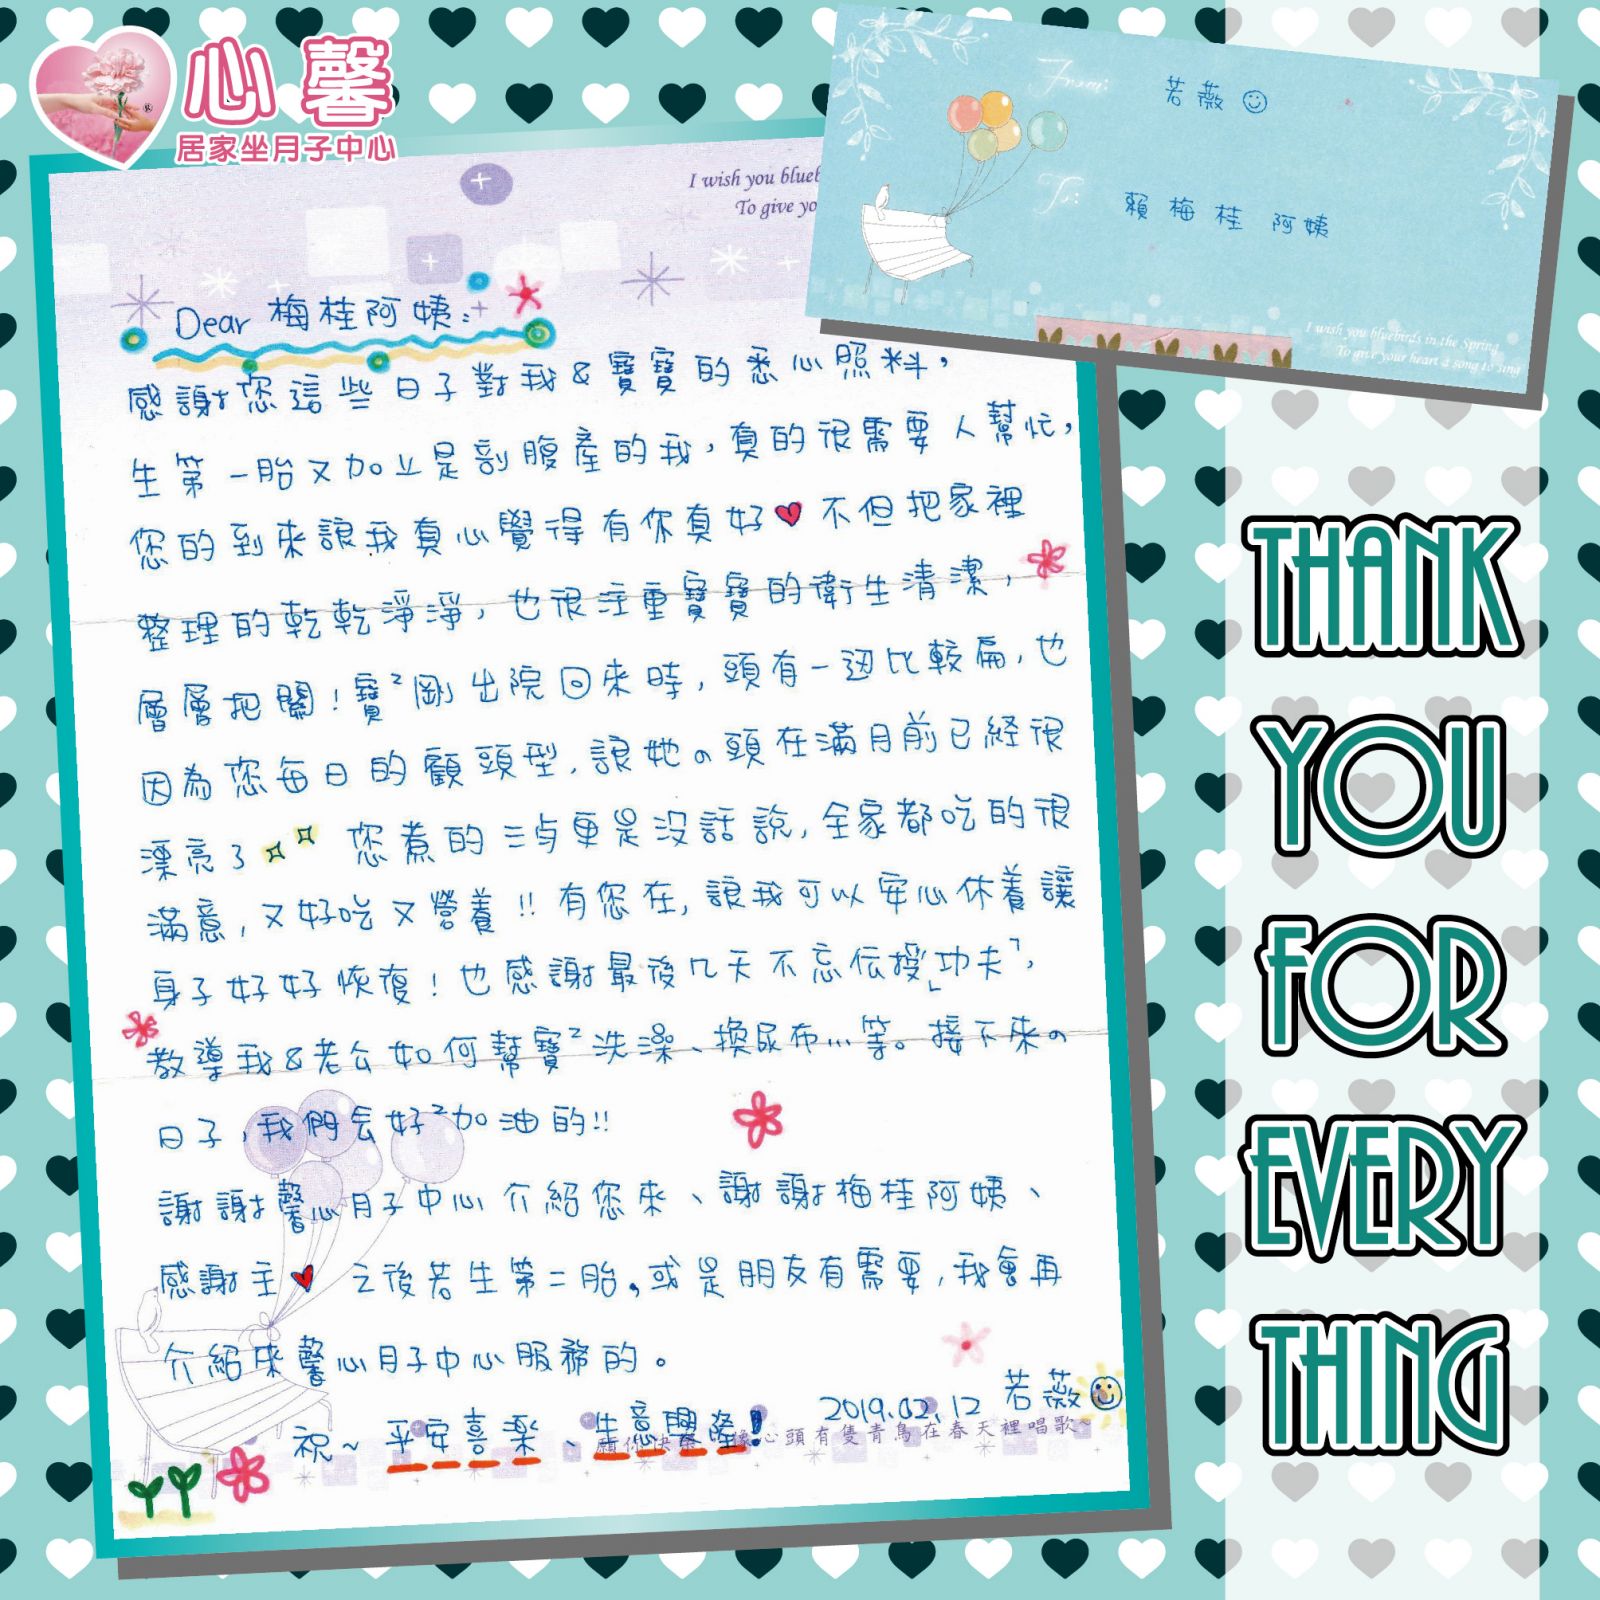 心馨
居家坐月子中心
From:
若薇
To:
賴梅桂 阿姨
I wish you bluebirds in the Spring
To give your heart a song to sing
I wish you blueb
To give yo
Dear 梅桂阿姨:
感謝您這些日子對我&寶寶的悉心照料,
生第一胎又加上是剖腹產的我,真的很需要人幫忙,
您的到來讓我真心覺得有你真好 不但把家裡
整理的乾乾淨淨,也很注重寶寶的衛生清潔,
層層把關!寶²剛出院回來時,頭有一邊比較扁,也
因為您每日的顧頭型,讓她の頭在滿月前已経很
漂亮了 您煮的三歺更是沒話說,全家都吃的很
滿意,又好吃又營養!!有您在,讓我可以安心休養讓
身子好好恢復!也感謝最後几天不忘伝授「功夫」,
教導我&老公如何幫寶²洗澡、換尿布…等。接下來の
日子,我們会好²加油的!!
謝謝馨心月子中心介紹您來、謝謝梅桂阿姨、
感謝主 之後若生第二胎,或是朋友有需要,我會再
介紹來馨心月子中心服務的。
2019.02.12 若薇
祝~平安喜樂、生意興隆!
願你快樂 像心頭有隻青鳥在春天裡唱歌~
THANK
YOU
FOR
EVERY
THING